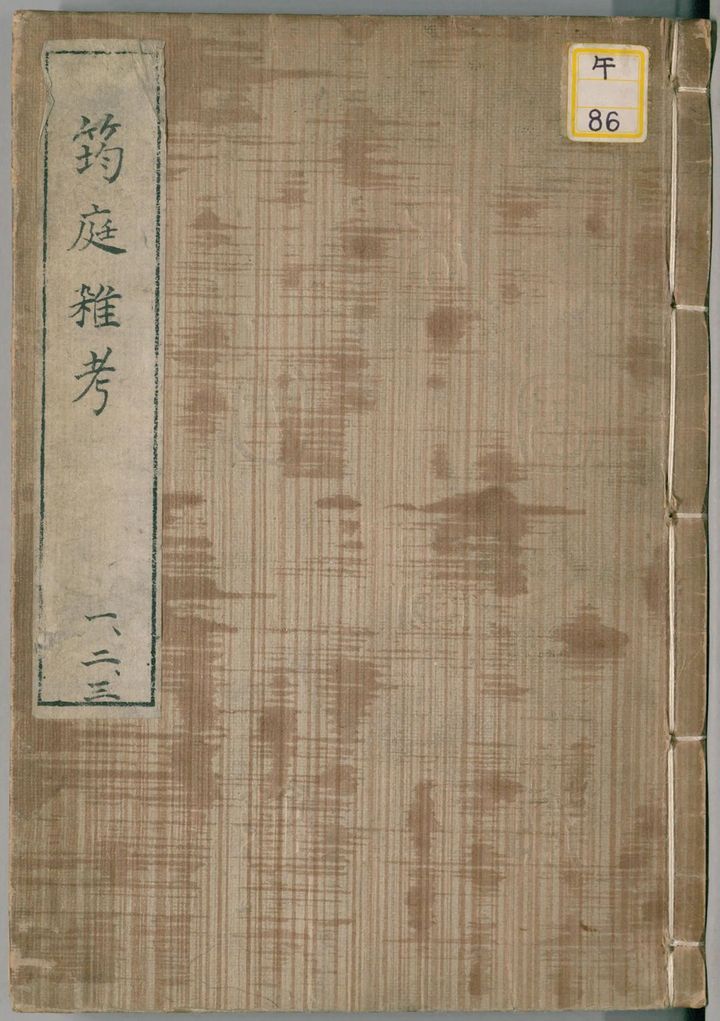 筠庭雜考
一、二、三
午
86